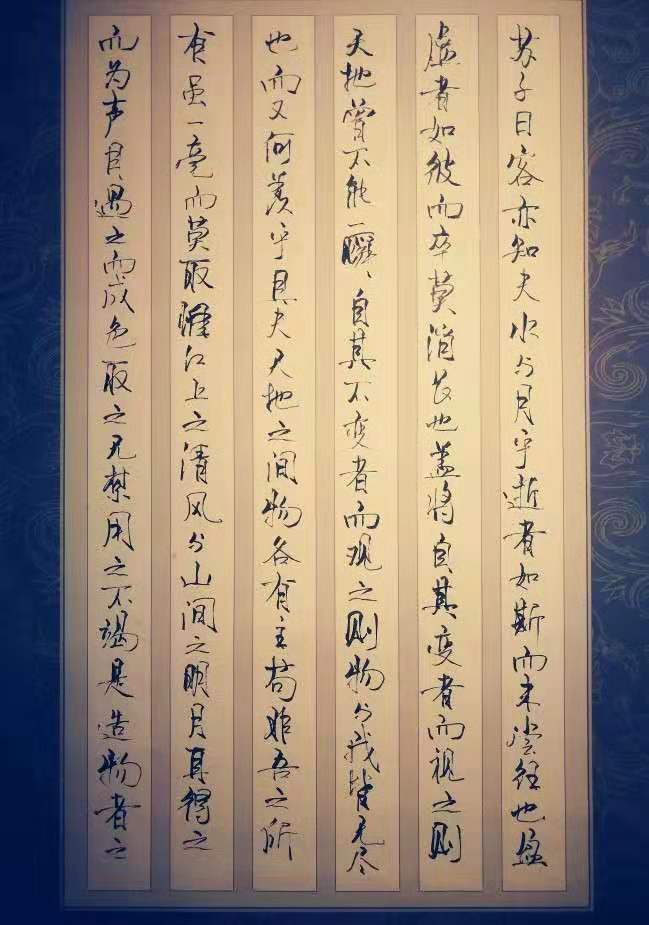 苏子曰客亦知夫水与月乎逝者如斯而未尝往也盈
虚者如彼而卒莫消长也盖将自其变者而视之则
天地曾不能一瞬、自其不变者而观之则物与我皆无尽
也而又何羡乎且夫天地之间物各有主苟非吾之所
有虽一毫而莫取惟江上之清风与山间之明月耳得之
而为声目遇之而成色取之无禁用之不竭是造物者之